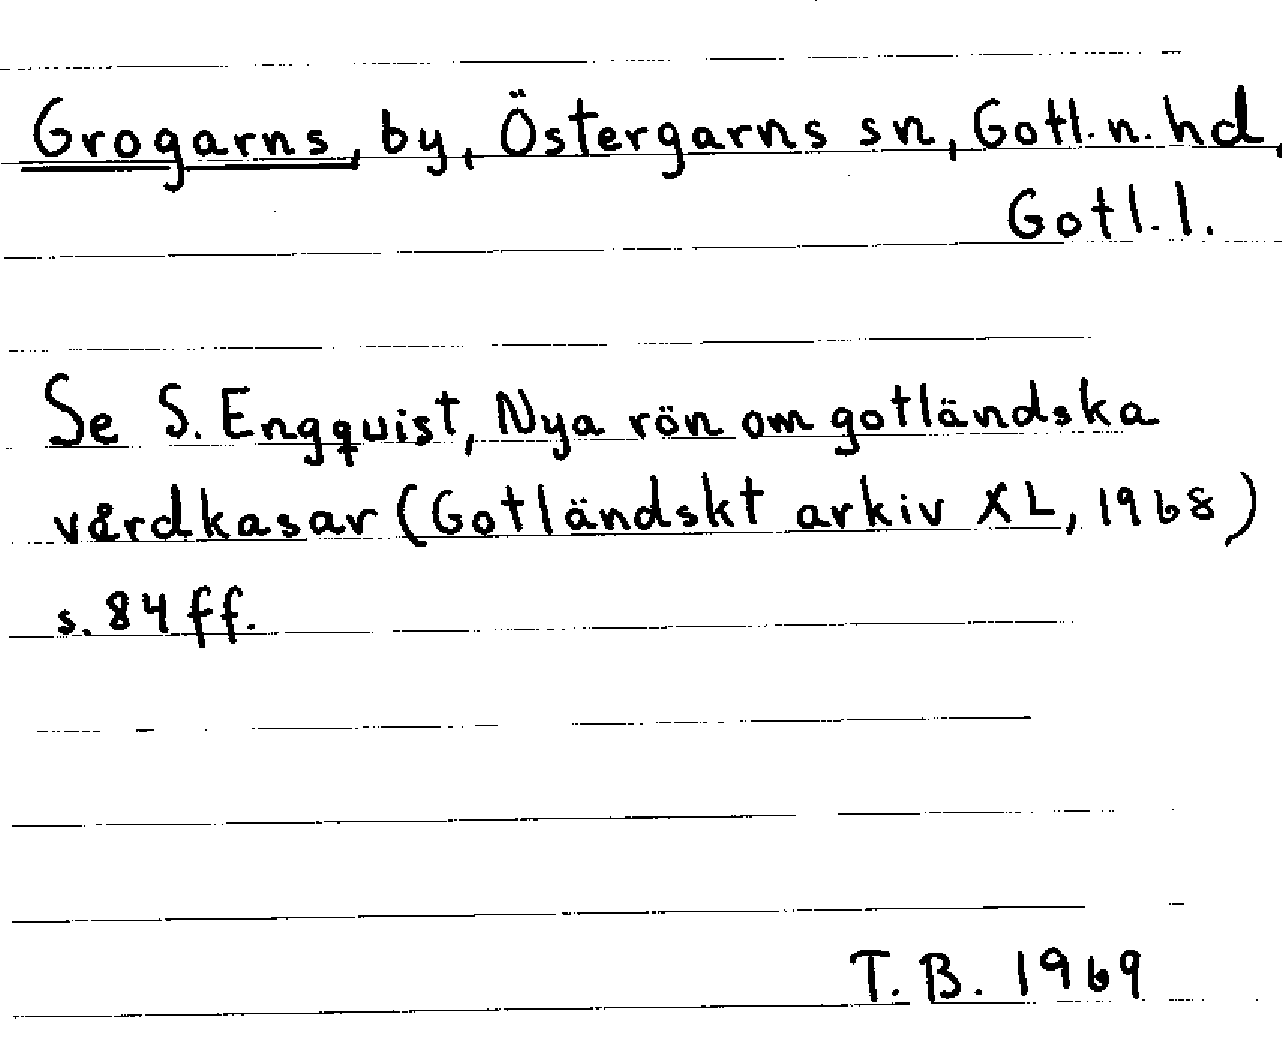 Grogarns, by, Östergarns sn, Gotl. n. hd,
Gotl. l.
Se S. Engquist, Nya rön om gotländska
vårdkasar (Gotländskt arkiv XL, 1968)
s. 84 ff.
T. B. 1969